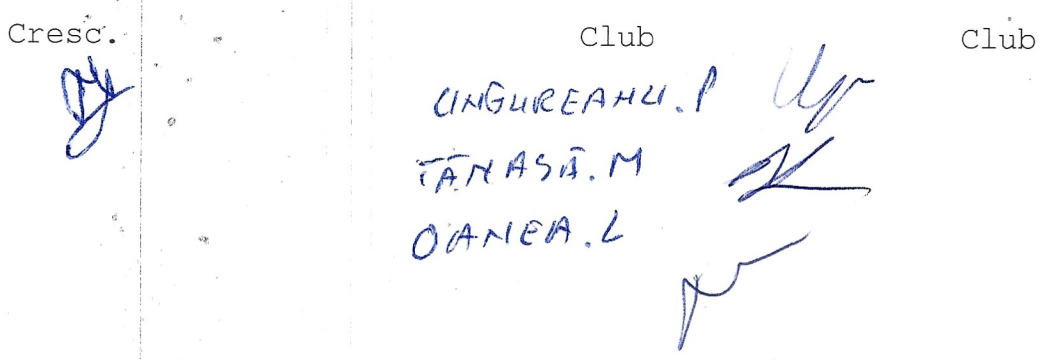 Cresc. Club Club
UNGUREANU.P
TĂNASĂ.M
OANEA.L